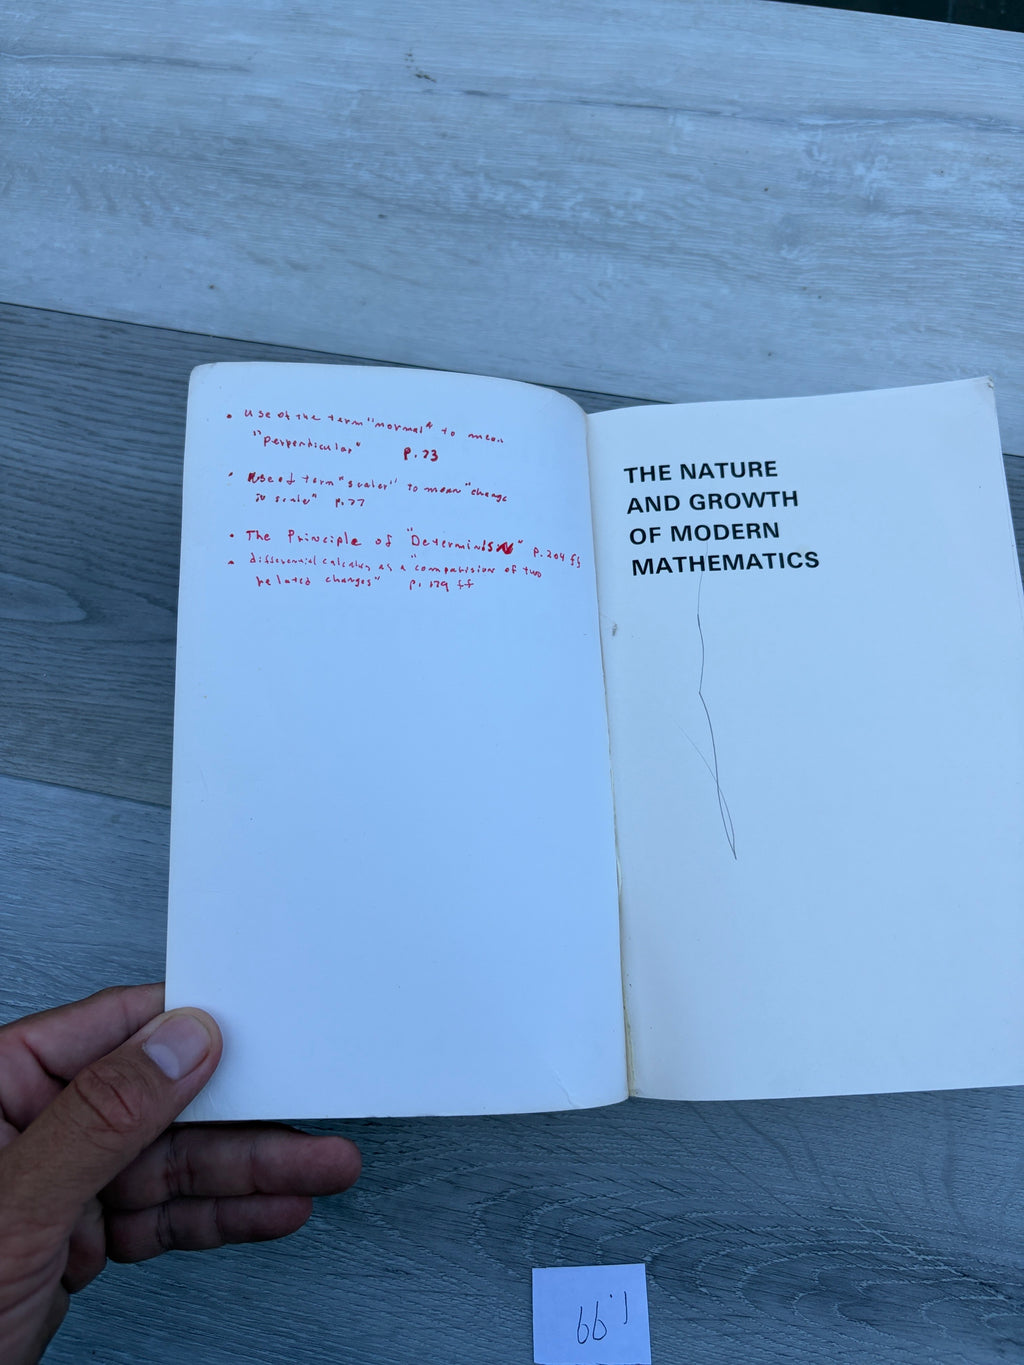 • Use of the term "normal" to mean
"Perpendicular" p. 73
• Use of term "scaler" to mean "change
in scale" p. 77
• The Principle of "Determinism" p. 204 ff
• differential calculus as a "comparision of two
related changes" p. 179 ff
THE NATURE
AND GROWTH
OF MODERN
MATHEMATICS